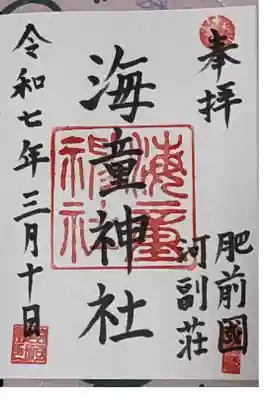 奉拝
肥前國
河副荘
海童神社
令和七年三月十日
海童神社